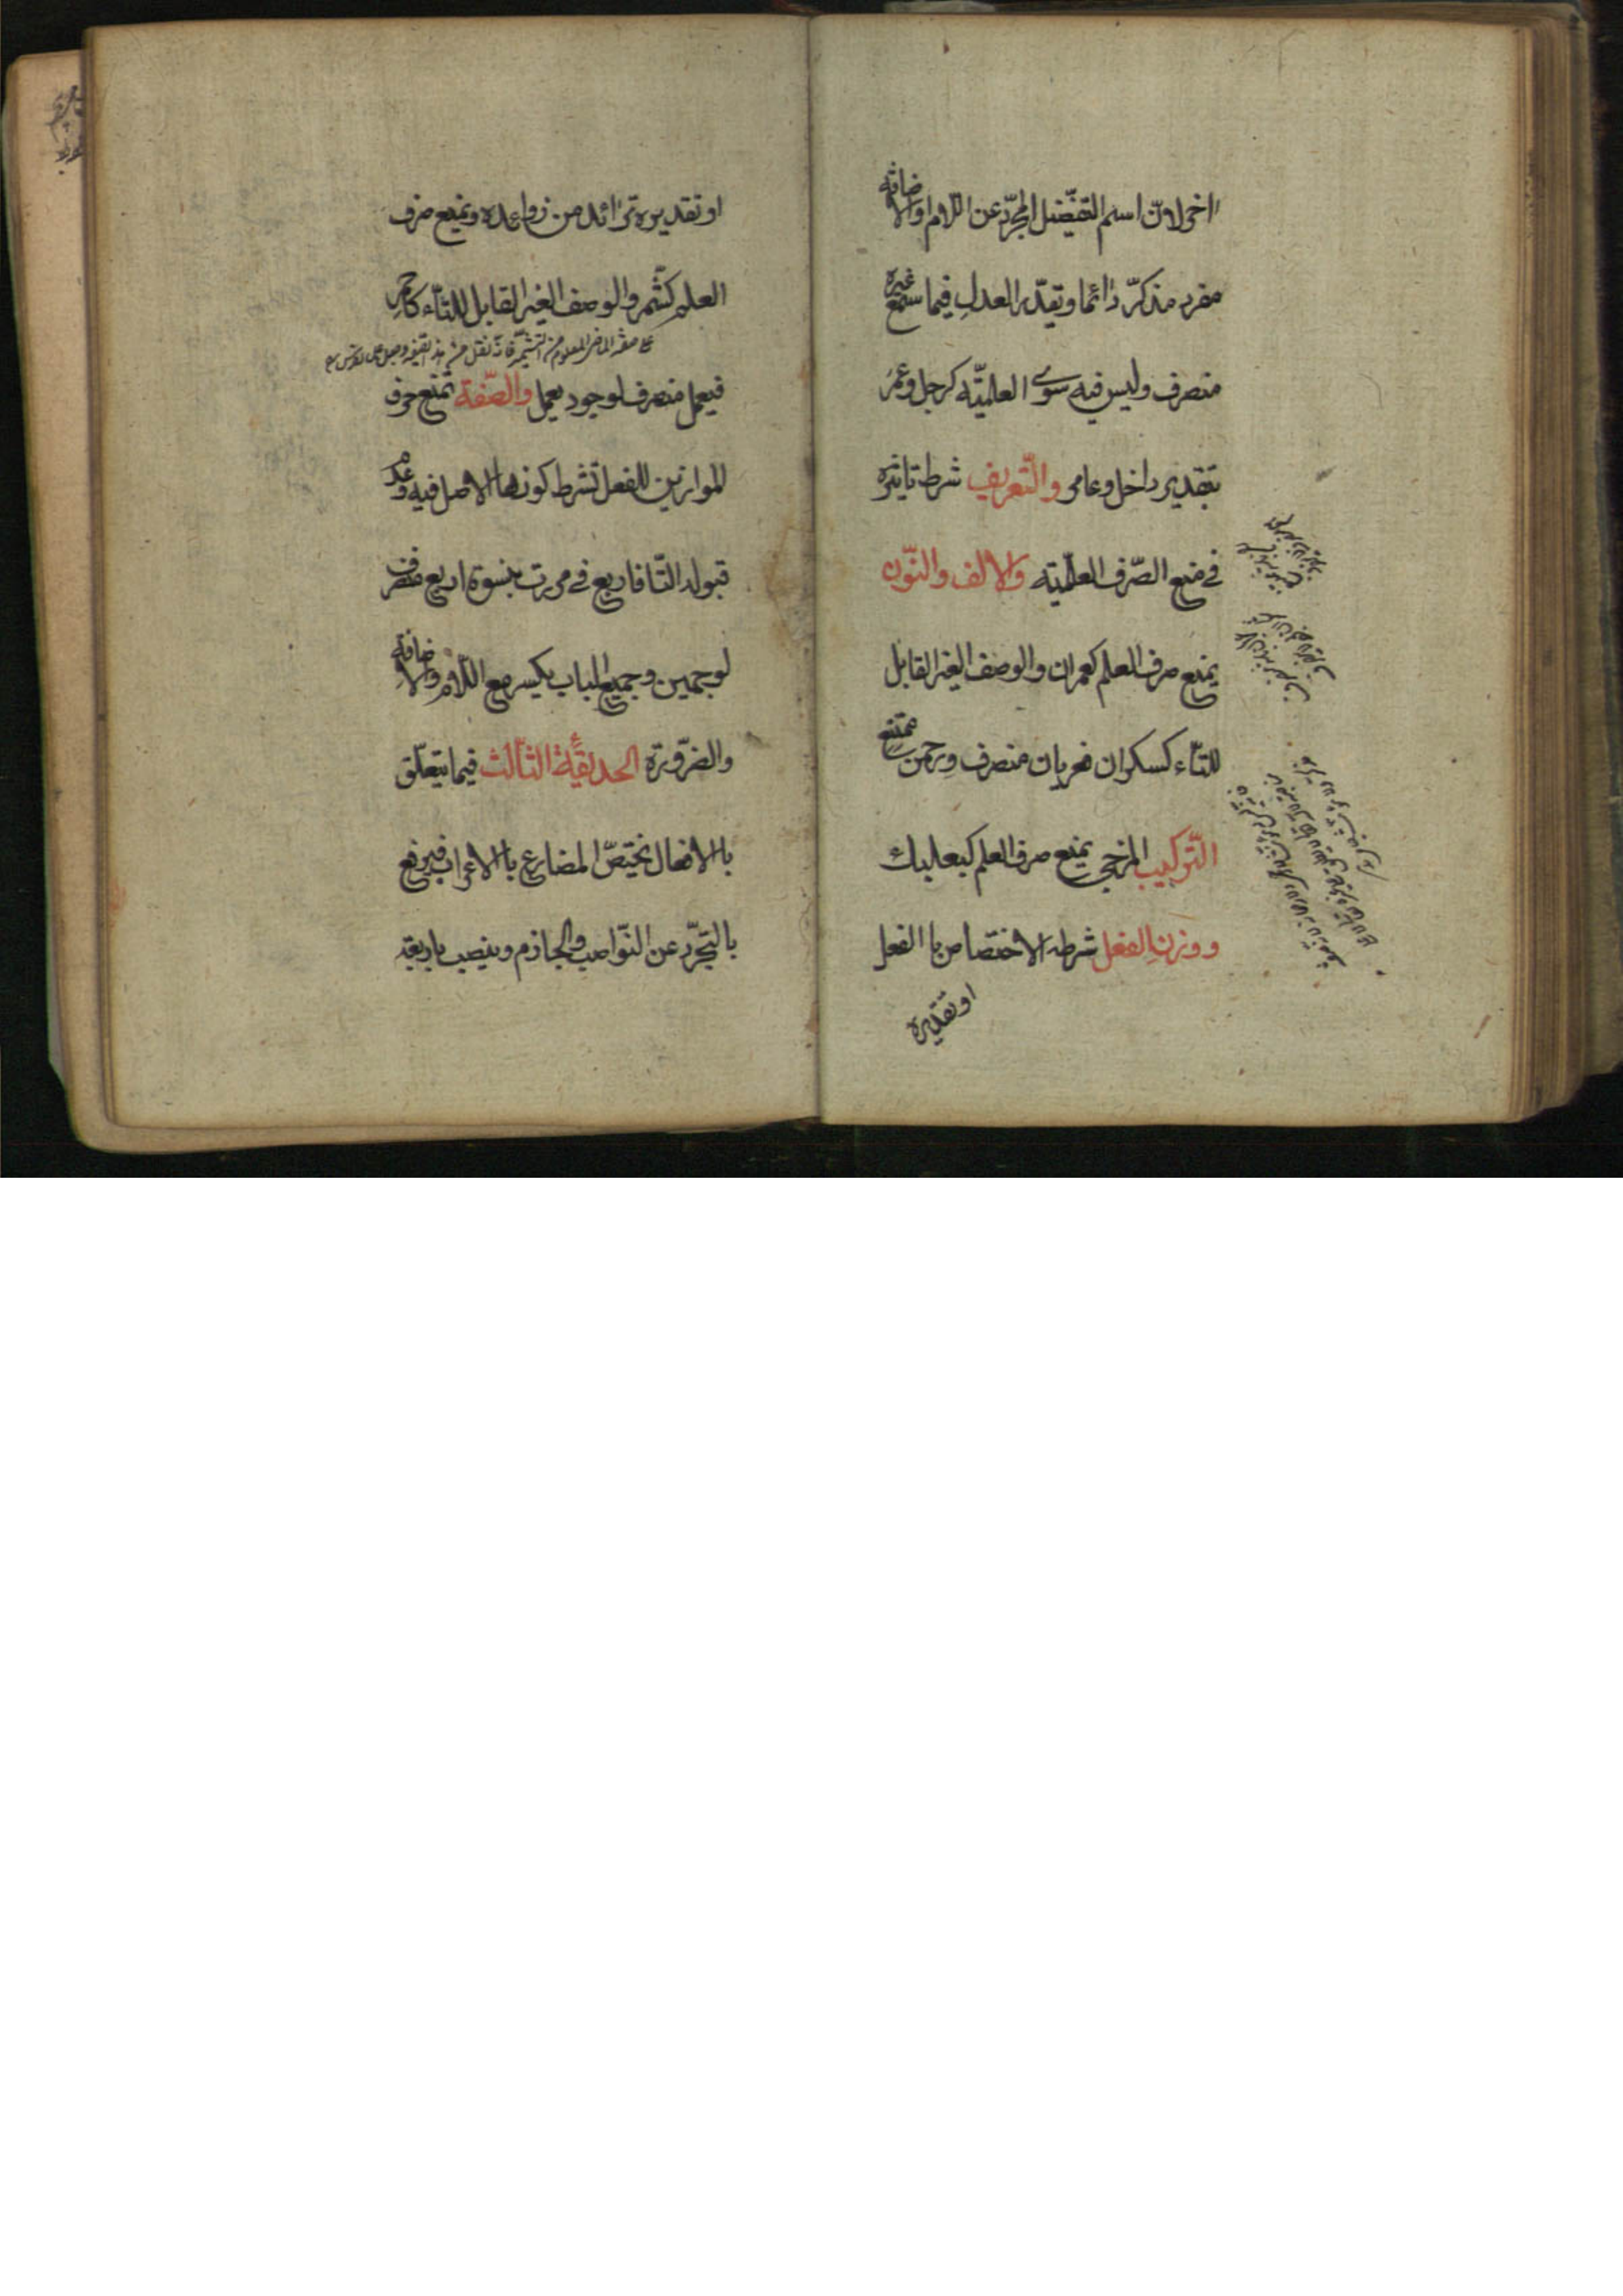 اخر لانّ اسم التفضيل المجرّد عن اللام والاضافة
مفرد مذكرّ دائما و يقدّر العدل فيما سمع غيره
منصرف وليس فيه سوى العلميّة كرجل وعمر
بتقدير داخل وعامر والتّعريف شرط تاثيره
في منع الصّرف العلميّة والالف والنّون
يمنع صرف العلم كعمران والوصف الغير القابل
للتّاء كسكران فعريان منصرف ورحمن ممتنع
التّركيب المزجي يمنع صرف العلم كبعلبك
ووزن الفعل شرطه الاختصاص با الفعل
او تقديره
او تقديره بزائد من زوائده ويمنع صرف
العلم كشّمر والوصف الغير القابل للتّاء كاحمر
فيعمل منصرف لوجود يعمل والصّفة تمنع صرف
الموازين للفعل بشرط كونها الاصل فيه وعدم
قبوله التّا فاربع في مررت بنسوة اربع منصرف
لوجهين وجميع الباب يكسر مع اللام والاضافة
والضّرورة الحديقة الثالث فيما يتعلّق
با الافعال يختصّ المضارع با الاعراب فيرفع
بالتجرّد عن النّواصب والجازم وينصب باربعة